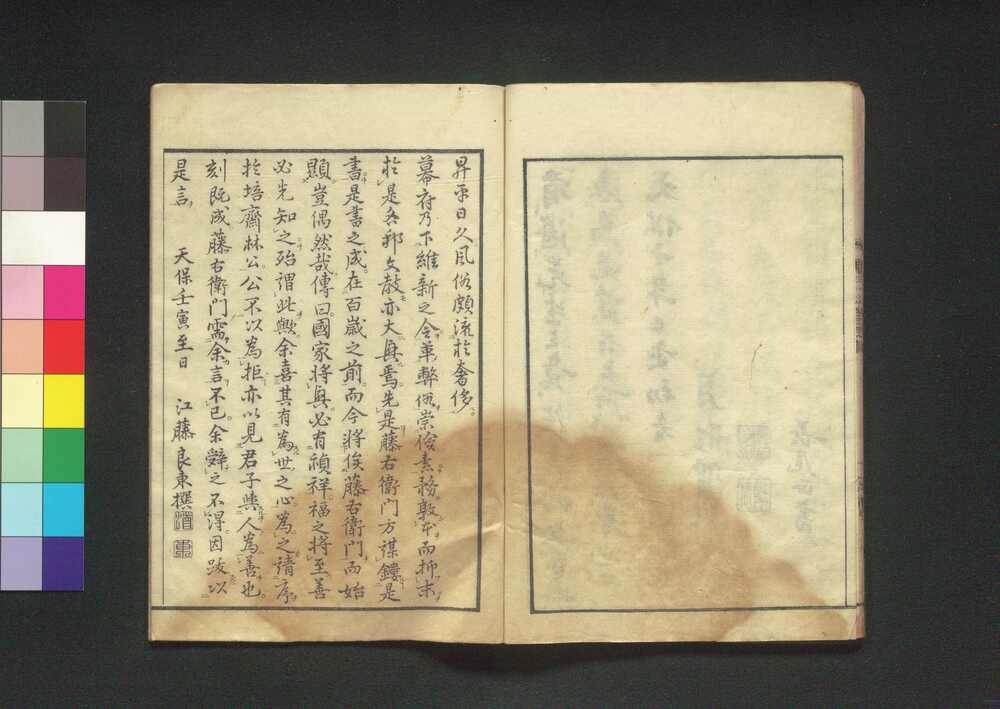 昇平日久風俗頗流於奢侈
幕府乃下維新之令革弊俗崇儉素務敦本而抑末
於是吾邦文教亦大興焉先是藤右衛門方謀鏤是
書是書之成在百歲之前而今將俟藤右衛門而始
顯豈偶然哉傳曰國家將興必有禎祥福之將至善
必先知之殆謂此歟余喜其有為世之心為之請序
於培齋林公公不以為拒亦以見君子與人為善也
刻既成藤右衛門需余言不已余辭之不得因跋以
是言
天保壬寅至日 江藤良東撰